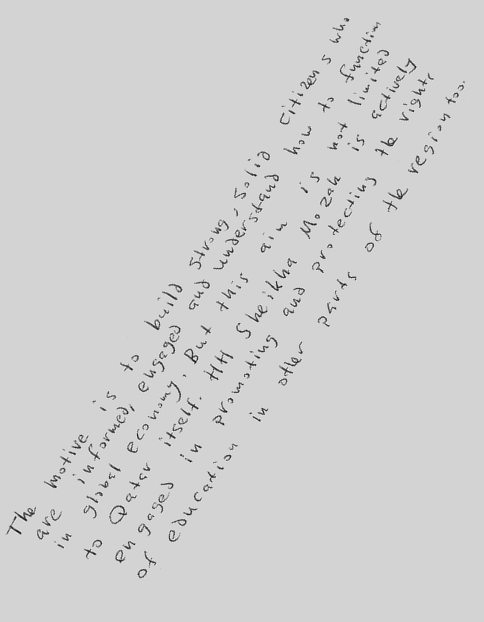 The motive is to build strong, solid citizens who
are informed, engaged and understand how to function
in global economy. But this aim is not limited
to Qatar itself. HH Sheikha Mozah is actively
engaged in promoting and protecting the rights
of education in other parts of the region too.